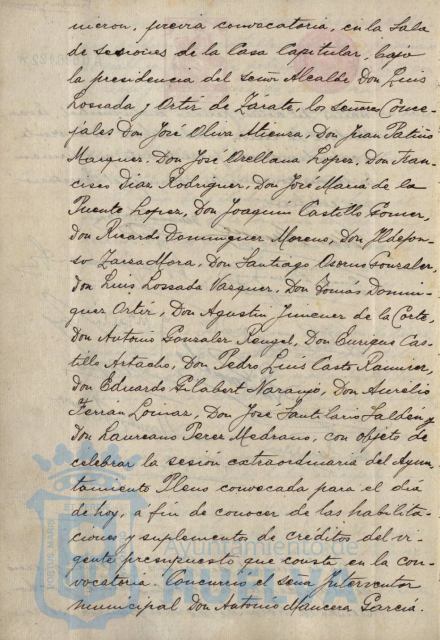 nieron, previa convocatoria, en la Sala
de sesiones de la Casa Capitular, bajo
la presidencia del señor Alcalde Don Luis
Lossada y Ortiz de Zárate, los señores Conce-
jales Don José Oliva Atienza, Don Juan Patiño
Marquez, Don José Orellana Lopez, Don Fran-
cisco Diaz Rodriguez, Don José Maria de la
Puente Lopez, Don Joaquin Castillo Gomez,
Don Ricardo Dominguez Moreno, Don Ildefon-
so Zarza Mora, Don Santiago Osorno Gonzalez,
Don Luis Lossada Vazquez, Don Tomás Domin-
guez Ortiz, Don Agustin Jimenez de la Corte,
Don Antonio Gonzalez Rengel, Don Enrique Cas-
tillo Artacho, Don Pedro Luis Casto Ramirez,
Don Eduardo Gilabert Naranjo, Don Aurelio
Ferián Lomar, Don José Santilario Saldén y
Don Laureano Perez Medrano, con objeto de
celebrar la sesión extraordinaria del Ayun-
tamiento Pleno convocada para el dia
de hoy, á fin de conocer de las habilita-
ciones y suplementos de créditos del vi-
gente presupuesto que consta en la con-
vocatoria. Concurrió el señor Interventor
municipal Don Antonio Mancera Garcia.
PORTUS MARIS
Ayuntamiento de
HUELVA